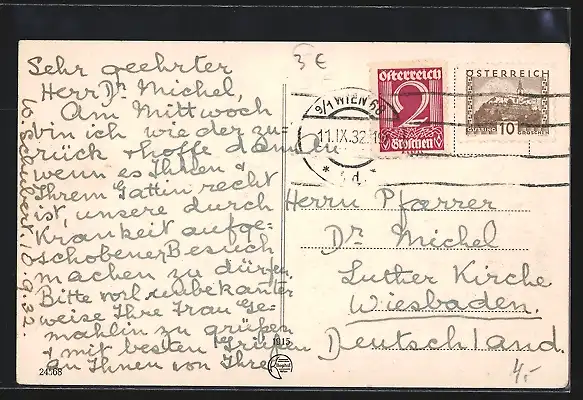 Sehr geehrter
Herr Dr. Michel,
Am Mittwoch
bin ich wieder zu-
rück & hoffe dann
wenn es Ihnen &
Ihrem Gattin recht
ist, unsere durch
Krankeit aufge-
schobener Besuch
machen zu dürfen.
Bitte vorl unbekannter
weise Ihre Frau Ge-
mahlin zu grüßen
& mit besten Grüßen
an Ihnen von Ihre
10.9.32.
3 €
9/1 WIEN 68
11.IX.32
Österreich
2
Groschen
ÖSTERREICH
10
Herrn Pfarrer
Dr. Michel
Luther Kirche
Wiesbaden.
Deutschland.
4,-
1915
24568